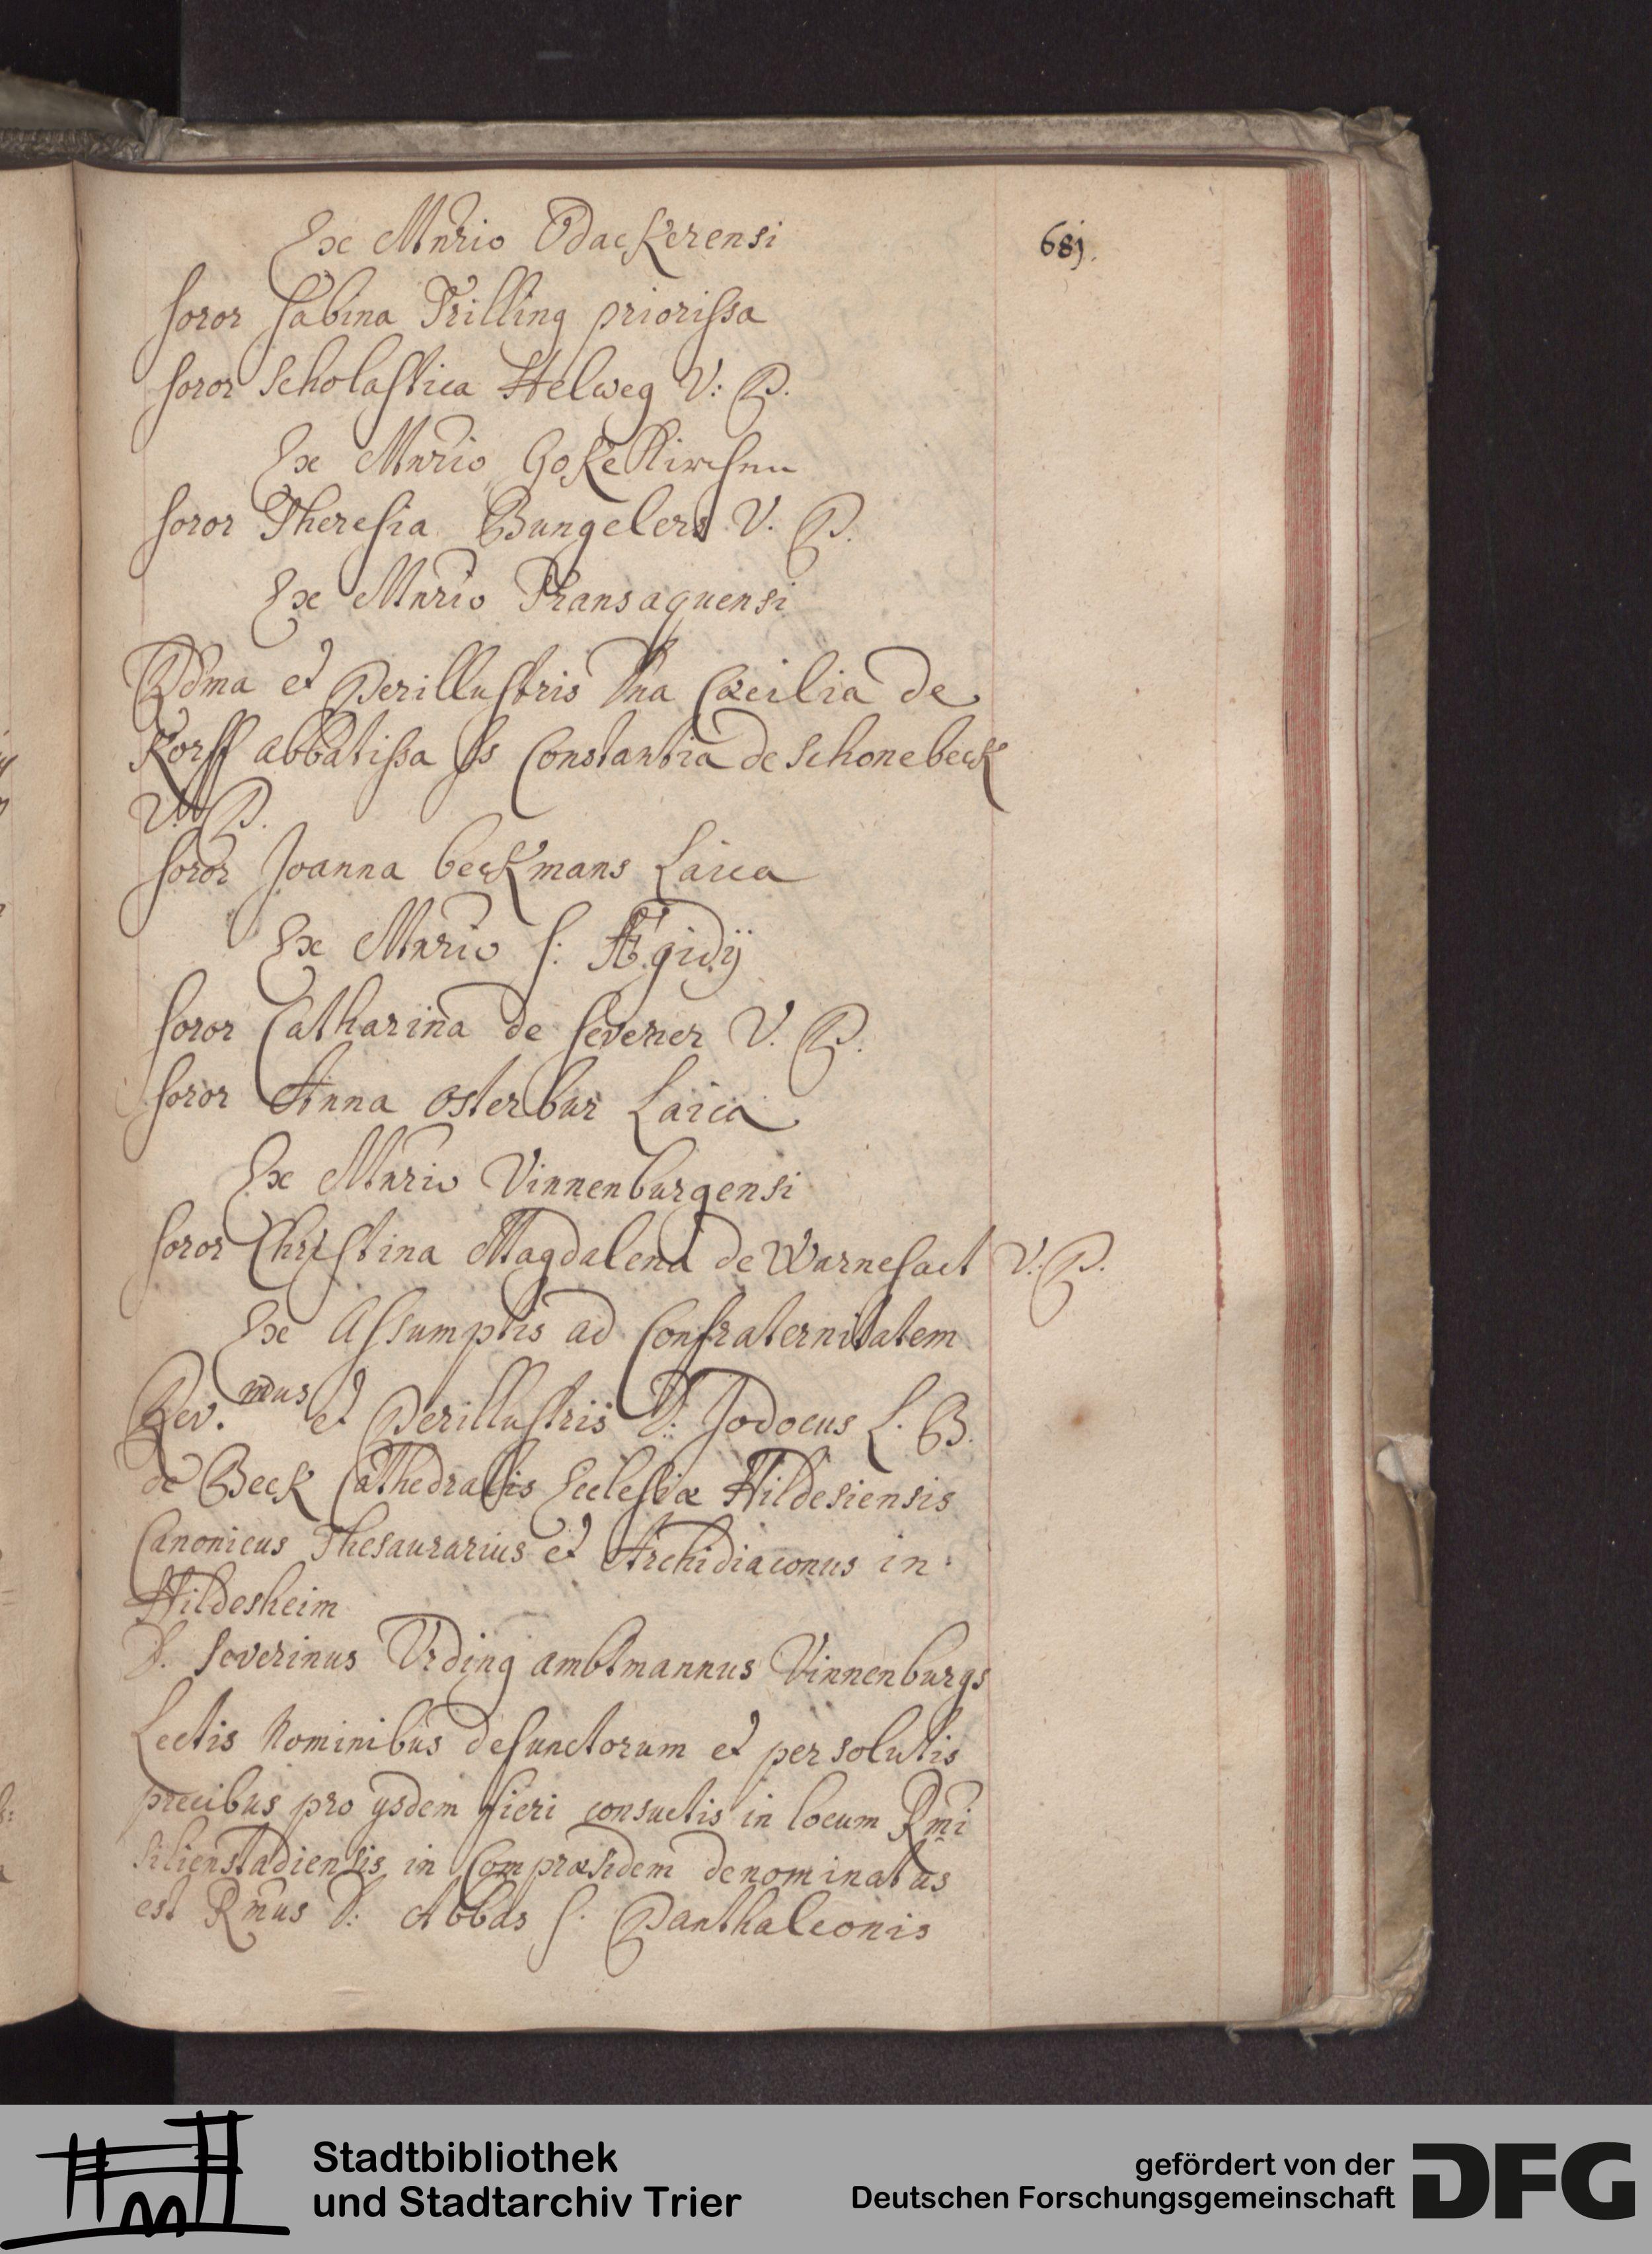 Ex Mnrio Odackerensi
681.
soror Sabina Trilling priorissa
soror Scholastica Helweg V: P.
Ex Mnrio Gokekirchen
soror Theresia Bungelers V. P.
Ex Mnrio Transaquensi
Rdma et Perillustris Dna Cæcilia de
Korff abbatissa Constantia de Schonebeck
V. P.
soror Joanna beckmans Laica
Ex Mnrio S: Ægidÿ
soror Catharina de Severner V. P.
soror Anna Osterbur Laica
Ex Mnrio Vinnenburgensi
soror Christina Magdalena de V. P.
Ex Assumptis ad Confraternitatem
Rev.mus et Perillustris D: Jodocus L. B.
de Beck Cathedralis Ecclesiæ Hildesiensis
Canonicus Thesaurarius et Archidiaconus in
Hildesheim
D. Severinus Urding ambtmannus Vinnenburgs
Lectis Nominibus defunctorum et persolutis
precibus pro ysdem fieri consuetis in locum Rmi
Silienstadiensis in Compræsidem denominatus
est Rmus D: Abbas S. Panthaleonis
Stadtbibliothek
und Stadtarchiv Trier
gefördert von der
Deutschen Forschungsgemeinschaft
DFG